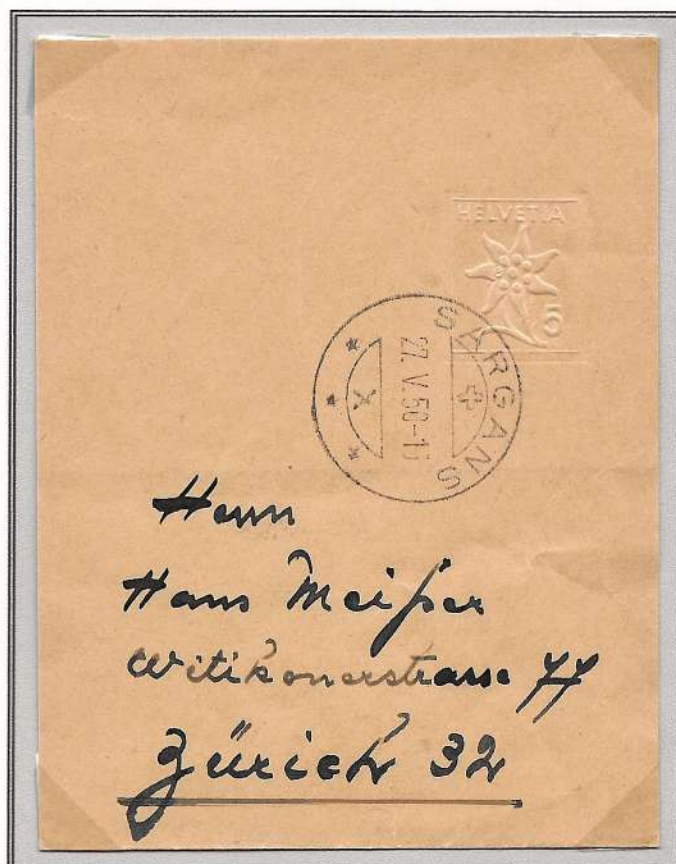 HELVETIA
5
SARGANS
27. V. 50-1
X
Herrn
Hans Meißer
Witikonerstrasse 77
Zürich 32